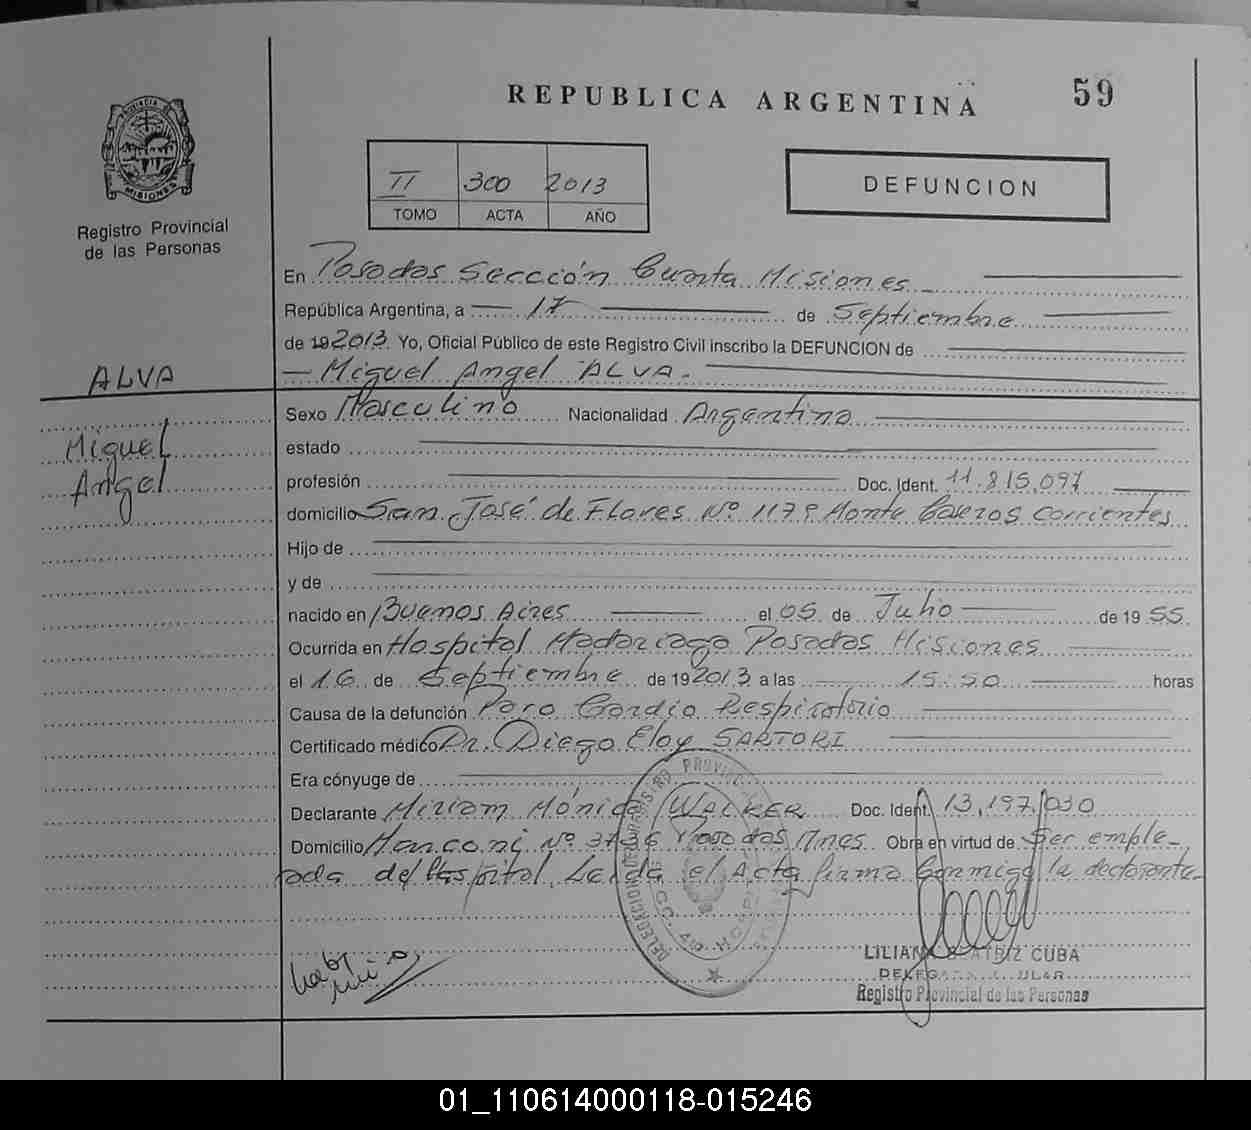 REPUBLICA ARGENTINA
59
PROVINCIA DE
MISIONES
Registro Provincial
de las Personas
II 300 2013
TOMO ACTA AÑO
DEFUNCION
En Posadas Sección Cuarta Misiones
República Argentina, a 17 de Septiembre
de 192013. Yo, Oficial Público de este Registro Civil inscribo la DEFUNCION de
ALVA
Miguel Angel ALVA.
Sexo Masculino Nacionalidad Argentina
Miguel
Angel
estado
profesión Doc. Ident. 11.815.097
domicilio San José de Flores Nº 1179 Monte Caseros Corrientes
Hijo de
y de
nacido en Buenos Aires el 05 de Julio de 1955.
Ocurrida en Hospital Madariaga Posadas Misiones
el 16 de Septiembre de 192013 a las 15:50 horas
Causa de la defunción Paro Cardio Respiratorio
Certificado médico Dr. Diego Eloy SARTORI
Era cónyuge de
Declarante Miriam Mónica WALKER Doc. Ident. 13,197,030
Domicilio Nº Posadas Mnes Obra en virtud de Ser emple-
ada del Hospital, Leída el Acta firma Conmigo la declarante
LILIANA BEATRIZ CUBA
DELEGADA TITULAR
Registro Provincial de las Personas
01_110614000118-015246